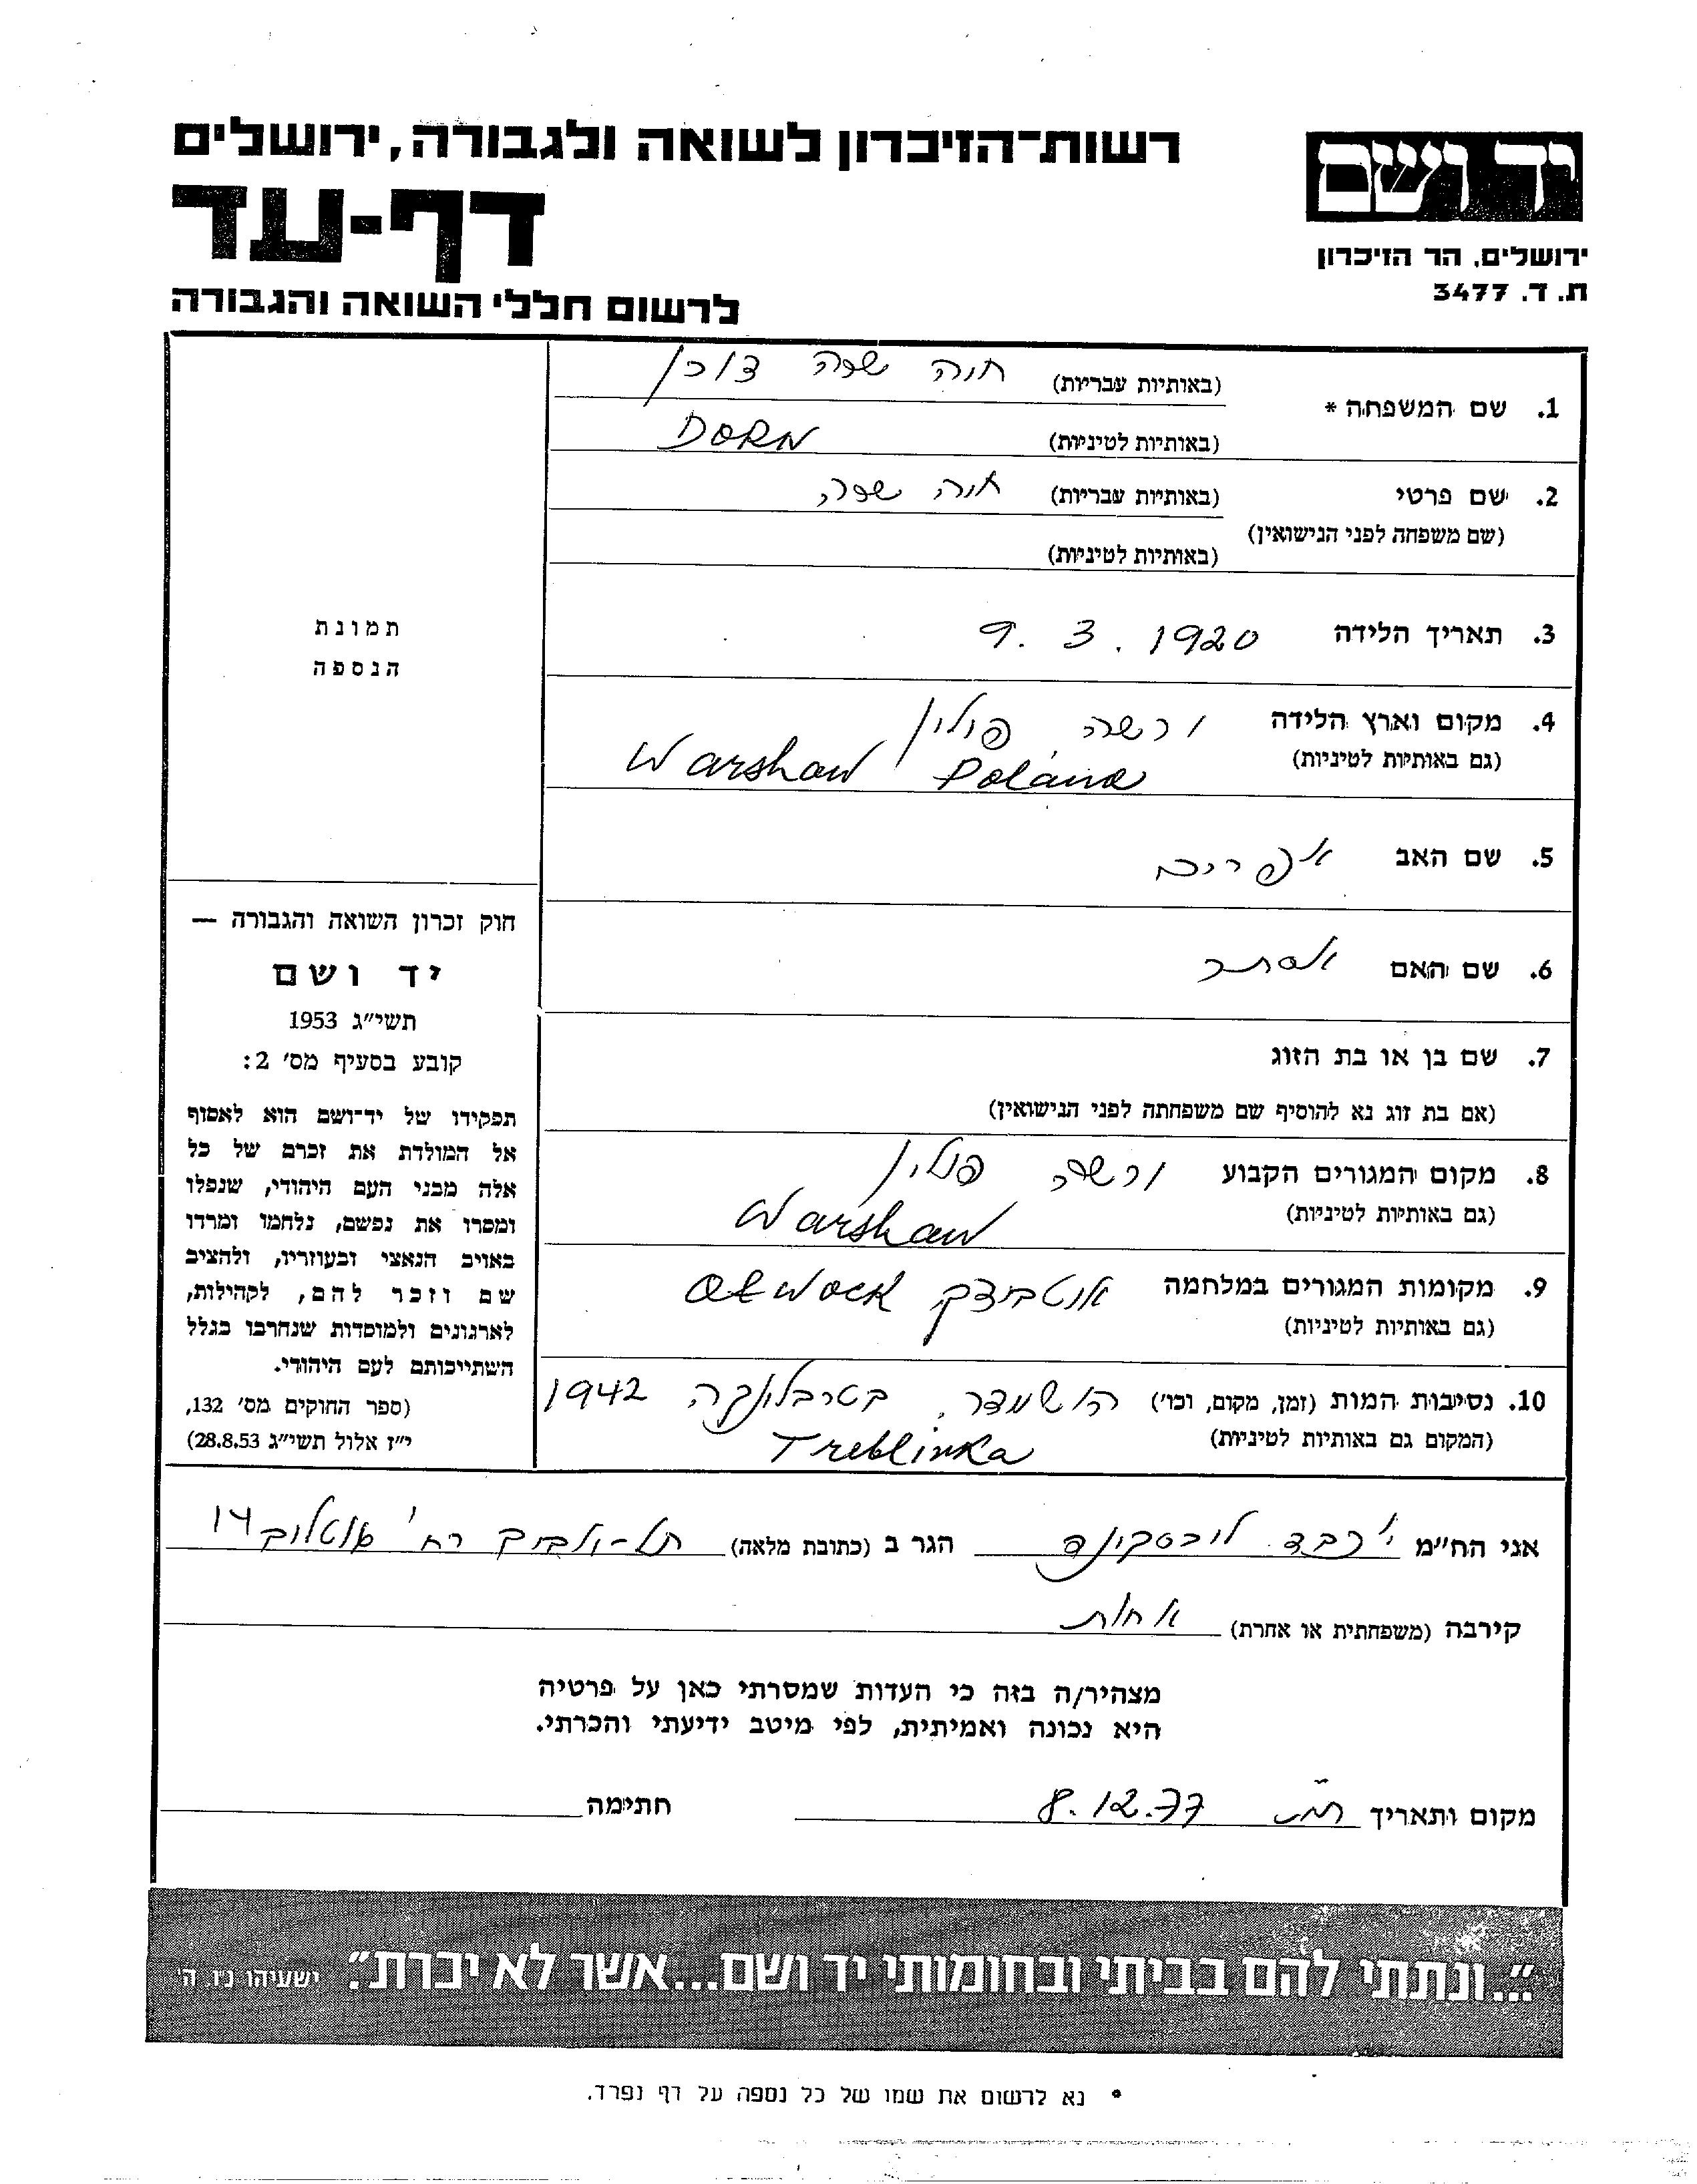 רשות־הזיכרון לשואה ולגבורה, ירושלים
יד ושם
דף-עד
ירושלים, הר הזיכרון
ת. ד. 3477
לרשום חללי השואה והגבורה
1. שם המשפחה * (באותיות עבריות) חוה שרה דורן
(באותיות לטיניות) DORN
2. שם פרטי (באותיות עבריות) חוה שרה
(שם משפחה לפני הנישואין)
(באותיות לטיניות)
3. תאריך הלידה 9. 3. 1920
4. מקום וארץ הלידה ורשה פולין
(גם באותיות לטיניות) Warshaw Poland
5. שם האב אפרים
6. שם האם אסתר
7. שם בן או בת הזוג
(אם בת זוג נא להוסיף שם משפחתה לפני הנישואין)
8. מקום המגורים הקבוע ורשה פולין
(גם באותיות לטיניות) Warshaw
9. מקומות המגורים במלחמה אוטבוצק Otwock
(גם באותיות לטיניות)
10. נסיבות המות (זמן, מקום, וכו') הושמדה בטרבלינקה 1942
(המקום גם באותיות לטיניות) Treblinka
תמונת
הנספה
חוק זכרון השואה והגבורה —
יד ושם
תשי״ג 1953
קובע בסעיף מס׳ 2:
תפקידו של יד־ושם הוא לאסוף
אל המולדת את זכרם של כל
אלה מבני העם היהודי, שנפלו
ומסרו את נפשם, נלחמו ומרדו
באויב הנאצי ובעוזריו, ולהציב
שם וזכר להם, לקהילות,
לארגונים ולמוסדות שנחרבו בגלל
השתייכותם לעם היהודי.
(ספר החוקים מס׳ 132,
י״ז אלול תשי״ג 28.8.53)
אני הח״מ יוכבד הגר ב (כתובת מלאה) תל-אביב רח' 14
קירבה (משפחתית או אחרת) אחות
מצהיר/ה בזה כי העדות שמסרתי כאן על פרטיה
היא נכונה ואמיתית, לפי מיטב ידיעתי והכרתי.
מקום ותאריך ת״א 8.12.77 חתימה
"...ונתתי להם בביתי ובחומותי יד ושם...אשר לא יכרת". ישעיהו נ״ו, ה'
* נא לרשום את שמו של כל נספה על דף נפרד.